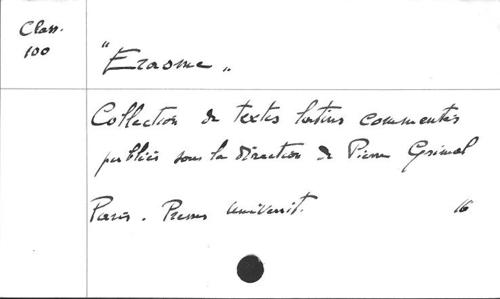 Class.
100
"Erasme„
Collection de textes latins commentés
publiés sous la direction de Pierre Grimal
Paris. Presses Universit. 16